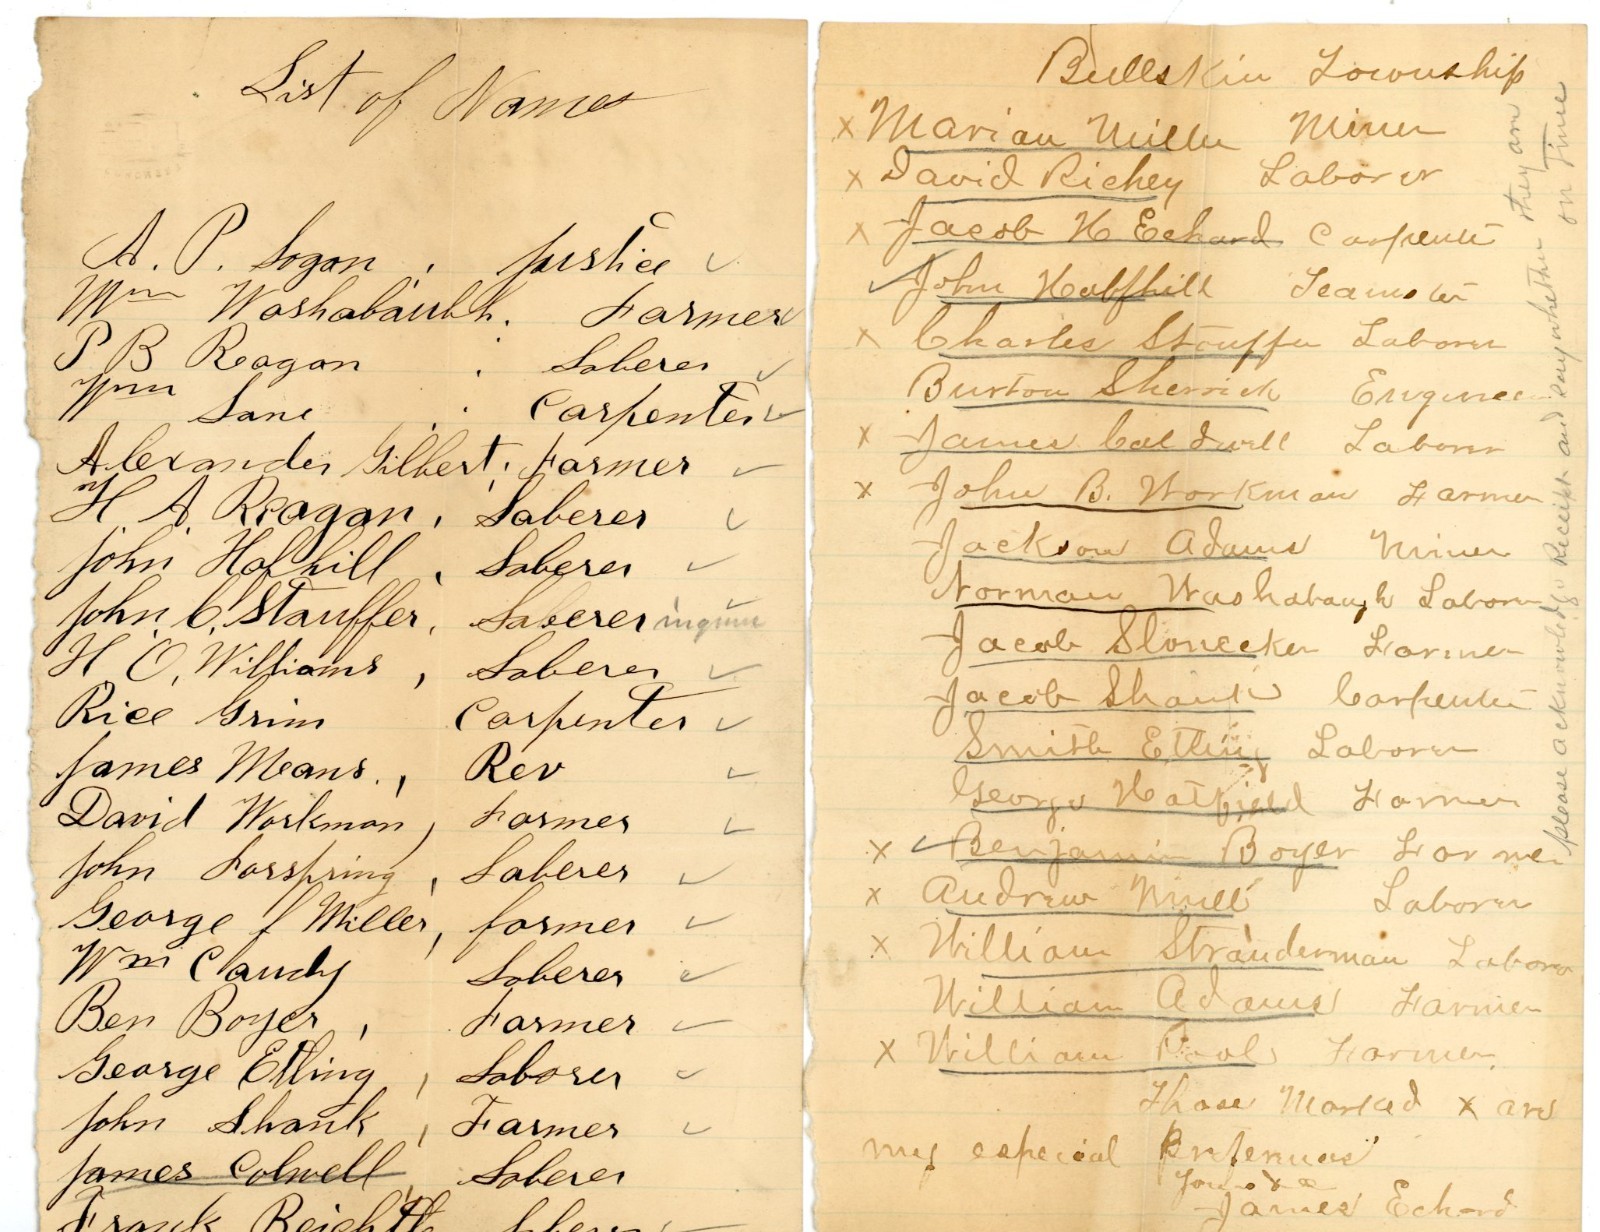 List of Names
A. P. Logan , Justice
Wm Washabaugh. Farmer
P B Reagan . Laberer
Wm Lane . Carpenter
Alexander Gilbert, Farmer
H. A. Reagan, Laberer
John Hafhill, Laberer
John. C. Stauffer, Laberer
H O, Williams, Laberer
Rice Grim Carpenter
James Means., Rev
David Workman, Farmer
John Forspring, Laberer
George J Miller, farmer
Wm Candy Laberer
Ben Boyer, Farmer
George Etling, Laborer
John Shank, Farmer
James Colwell, Laberer
Frank
Bullskin Township
x Marian Miller Miner
x David Richey Laborer
x Jacob H Echard Carpenter
John Habfhill Teamster
x Charles Stouffer Laborer
Burton Sherrick Engineer
x James Caldwell Laborer
x John B. Workman Farmer
Jackson Adams Miner
Norman Washabaugh Laborer
Jacob Slonecker Farmer
Jacob Shank Carpenter
Smith Etling Laborer
George Hatfield Farmer
x Benjamin Boyer Farmer
x Andrew Laborer
x William Strauderman Laborer
William Adams Farmer
x William Farmer
Those Marked x are
my especial
James Echard
please acknowledge Receipt and say whether they are
on Time